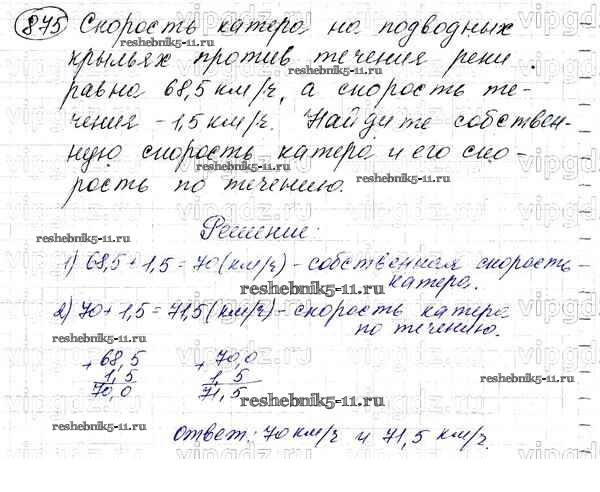 875 Скорость катера на подводных
крыльях против течения реки
равна 68,5 км/ч, а скорость те-
чения - 1,5 км/ч. Найдите собствен-
ную скорость катера и его ско-
рость по течению.
Решение:
1) 68,5 + 1,5 = 70 (км/ч) - собственная скорость
катера.
2) 70 + 1,5 = 71,5 (км/ч) - скорость катера
по течению.
+ 68,5 + 70,0
1,5 1,5
70,0 71,5
Ответ: 70 км/ч и 71,5 км/ч.
reshebnik5-11.ru
vipgdz.ru